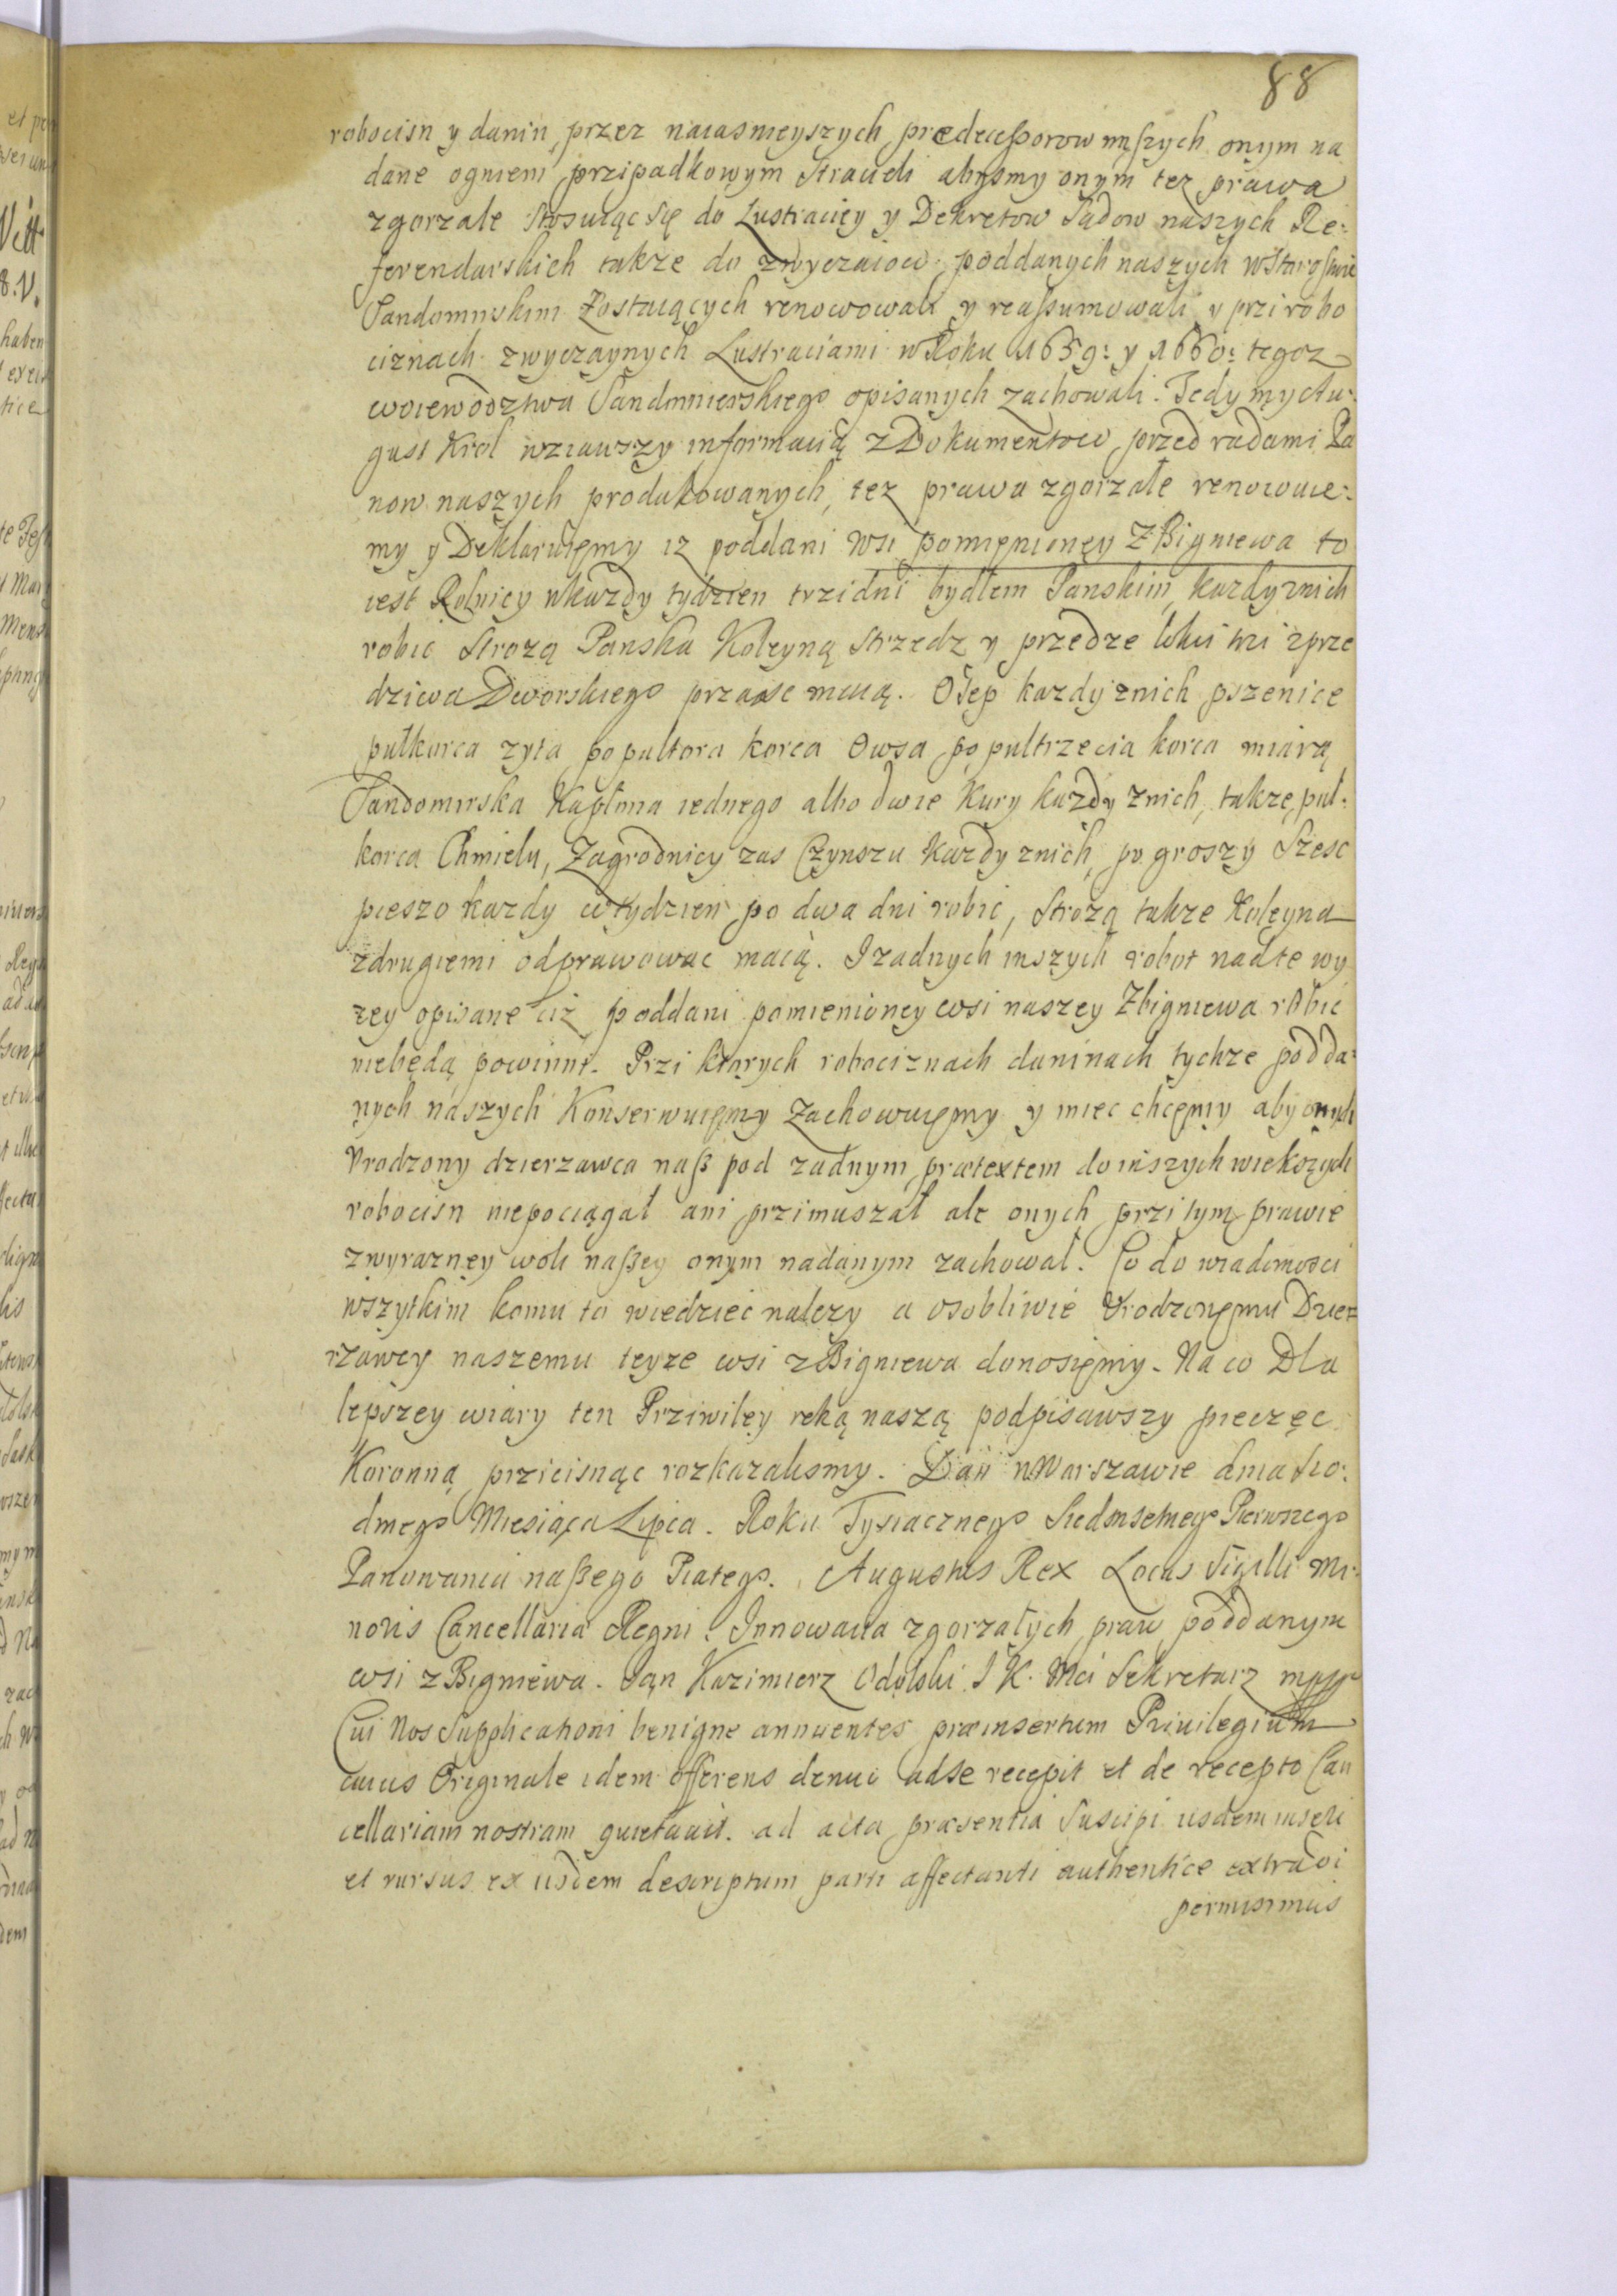 88
robocisn y danin przez naiasnieyszych prædecessorow nászych onym na
dane ogniem przipadkowym Stracieli abysmy onym tez prawa
zgorzale stosuiąc się do Lustraciey y Dekretow Sądow naszych Re:
ferendarskich takze do zwyczaiow poddanych naszych w Starostwie
Sandomirskim Zostaiących renowowali y reassumowali y przi robo
ciznach zwyczaynych Lustraciami w Roku 1659: y 1660: tegoz
woiewodztwa Sandomierskiego opisanych zachowali. Tedy my Au:
gust Krol wziawszy informacią z Dokumentow przed radami Pa
now naszych produkowanych, tez prawa zgorzałe renowuie:
my y Deklaruięmy iz poddani wsi pomięnionęy ZBigniewa to
iest Rolnicy w kazdy tydzien trzi dni bydłem Panskim kazdy znich
robic Strozą Panska Koleyną Strzedz y przedze łokci trzi z prze
dziwa Dworskiego prząsc maią. Osep kazdy znich pszenice
pułkorca zyta po pultora korca Owsa po pultrzecia korca miarą
Sandomirska Kapłona iednego albo dwie Kury kazdy znich, takze pul:
korca Chmielu, Zagrodnicy zas Czynszu kazdy znich po groszy Szesc
pieszo kazdy w tydzien po dwa dni robic, Strozą takze Koleyną
zdrugiemi odprawowac maią. I zadnych inszych robot nad te wy
zey opisane ciz poddani pomienioney wsi naszey Zbigniewa robic
niebędą powinni. Przi ktorych robociznach daninach tychze podda:
nych naszych Konserwuięmy Zachowuięmy y miec chcęmy aby onych
Vrodzony dzierzawca nasz pod zadnym prætextem do inszych wiekszych
robocisn niepociągał ani przimuszał ale onych przi tym prawie
z wyrazney woli naszey onym nadanym zachował. Co do wiadomosci
wszytkim komu to wiedziec nalezy a osobliwie Vrodzonęmu Dzier
rzawcy naszemu teyze wsi zBigniewa donosięmy. Na co Dla
lepszey wiary ten Priziwiley reką naszą podpisawszy pieczęc
Koronną przicisnąc rozkazalismy. Dan w Warszawie dnia Sio:
dmego Miesiąca Lipca. Roku Tysiacznego Siedmsetnego Pierwszego
Panowania naszego Piatego. Augustus Rex Locus Sigilli Mi:
noris Cancellaria Regni. Innowacia zgorzałych praw poddanym
wsi zBigniewa. Jan Kazimierz Odolski J K. Mci Sekretarz mpp
Cui Nos Supplicationi benigne annuentes præinsertum Priuilegium
cuius Originale idem offerens denuo ad se recepit et de recepto Can
cellariam nostram quietauit. ad acta præsentia Suscipi iisdem inseri
et rursus ex iisdem descriptum parti affectanti authentice extradi
permisimus